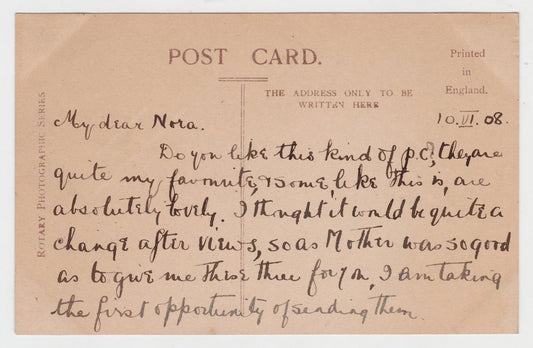 POST CARD.
Printed
in
England.
THE ADDRESS ONLY TO BE
WRITTEN HERE
ROTARY PHOTOGRAPHIC SERIES
10.VI.08.
My dear Nora.
Do you like this kind of p.c? they are
quite my favourite, & some, like this is, are
absolutely lovely. I thought it would be quite a
change after views, so as Mother was so good
as to give me these three for you, I am taking
the first opportunity of sending them.